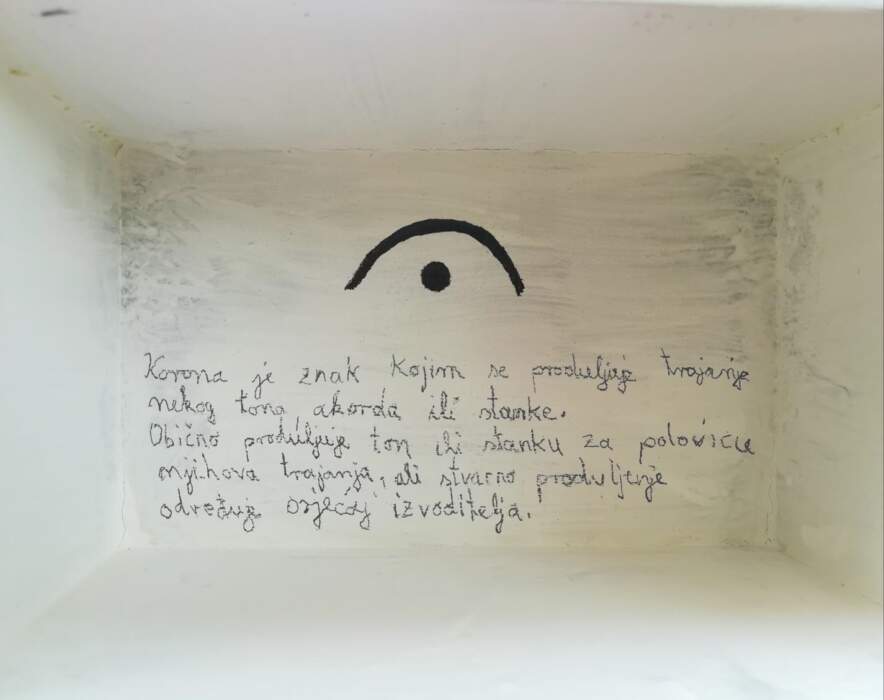 Korona je znak kojim se produljuje trajanje
nekog tona, akorda ili stanke.
Obično produljuje ton ili stanku za polovicu
njihova trajanja, ali stvarno produljenje
određuje osjećaj izvoditelja.